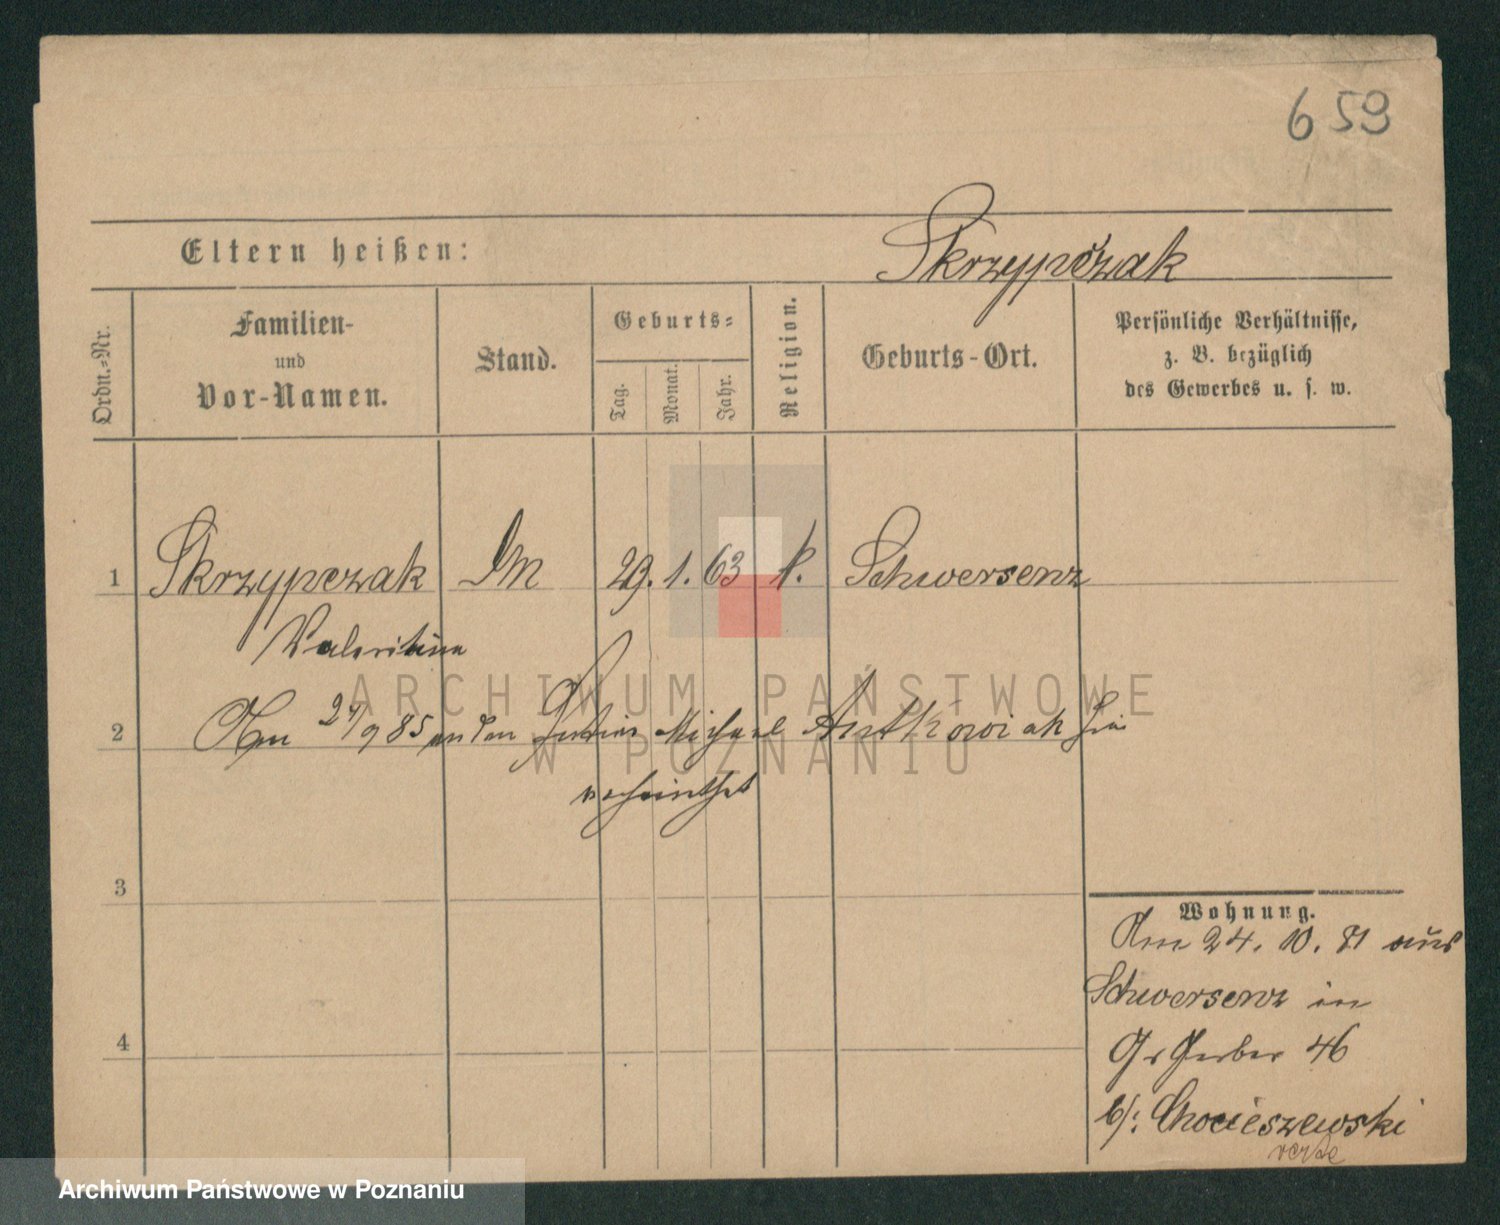 659
Skrzypczak
Eltern heißen:
Ordn.-Nr.
Familien-
und
Vor-Namen.
Stand.
Geburts-
Tag.
Monat.
Jahr.
Religion.
Geburts-Ort.
Persönliche Verhältnisse,
z. B. bezüglich
des Gewerbes u. s. w.
1 Skrzypczak 29. 1. 63 k. Schwersenz
2 Am 27/9 85 an den Michael Antkowiak hier
verheirathet
ARCHIWUM PAŃSTWOWE
W POZNANIU
3
4
Wohnung.
Am 24. 10. 81 aus
Schwersenz in
Gr Gerber 46
b/: Chocieszewski
Archiwum Państwowe w Poznaniu